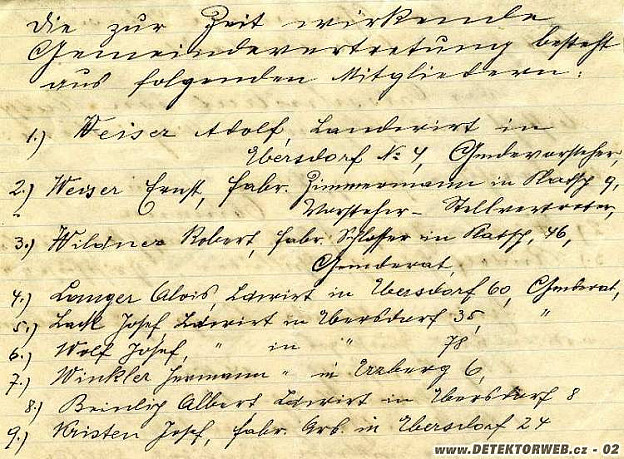 Die zur Zeit wirkende
Gemeindevertretung besteht
aus folgenden Mitgliedern:
1.) Weiser Adolf, Landwirt in
Ebersdorf № 4, Gmdevorsteher,
2.) Weiser Ernst, Fabr. Zimmermann in Ratsch 9,
Vorsteher-Stellvertreter,
3.) Wildner Robert, Fabr. Schlosser in Ratsch, 46,
Gemderat,
4.) Langer Alois, Ldwirt in Ebersdorf 60, Gmderat,
5.) Lack Josef, Ldwirt in Ebersdorf 35, "
6.) Wolf Josef, " in " 78
7.) Winkler Hermann " in Erzberg 6,
8.) Beinlich Albert Ldwirt in Ebersdorf 8
9.) Kristen Josef, Fabr. Arb. in Ebersdorf 24
www.DETEKTORWEB.cz - 02